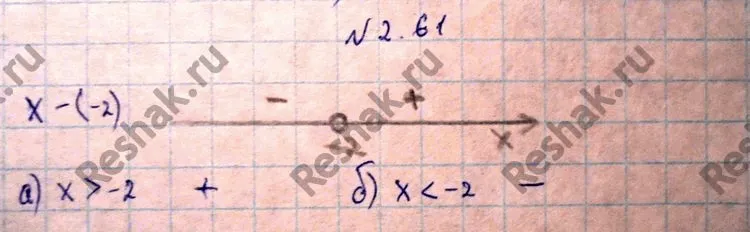 N 2.61
x - (-2) - + 
-2 x
а) x > -2 + б) x < -2 -
Reshak.ru Reshak.ru Reshak.ru Reshak.ru